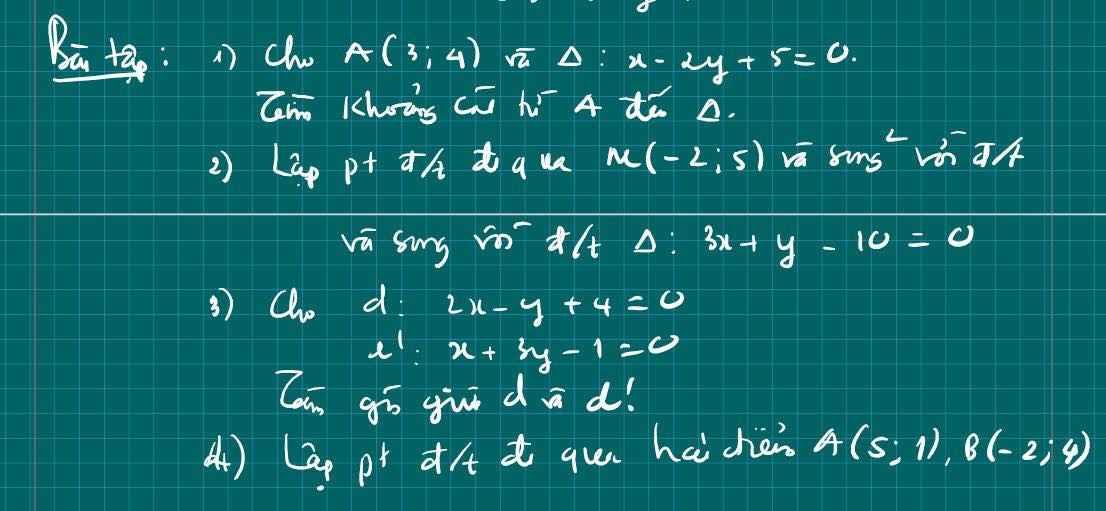 Bài tập: 1) Cho A(3; 4) và Δ: x - 2y + 5 = 0.
Tìm khoảng cách từ A đến Δ.
2) Lập pt đ/t đi qua M(-2; 5) và song² với đ/t
và song với đ/t Δ: 3x + y - 10 = 0
3) Cho d: 2x - y + 4 = 0
d': x + 3y - 1 = 0
Tìm góc giữa d và d'.
4) Lập pt đ/t đi qua hai điểm A(5; 1), B(-2; 4)